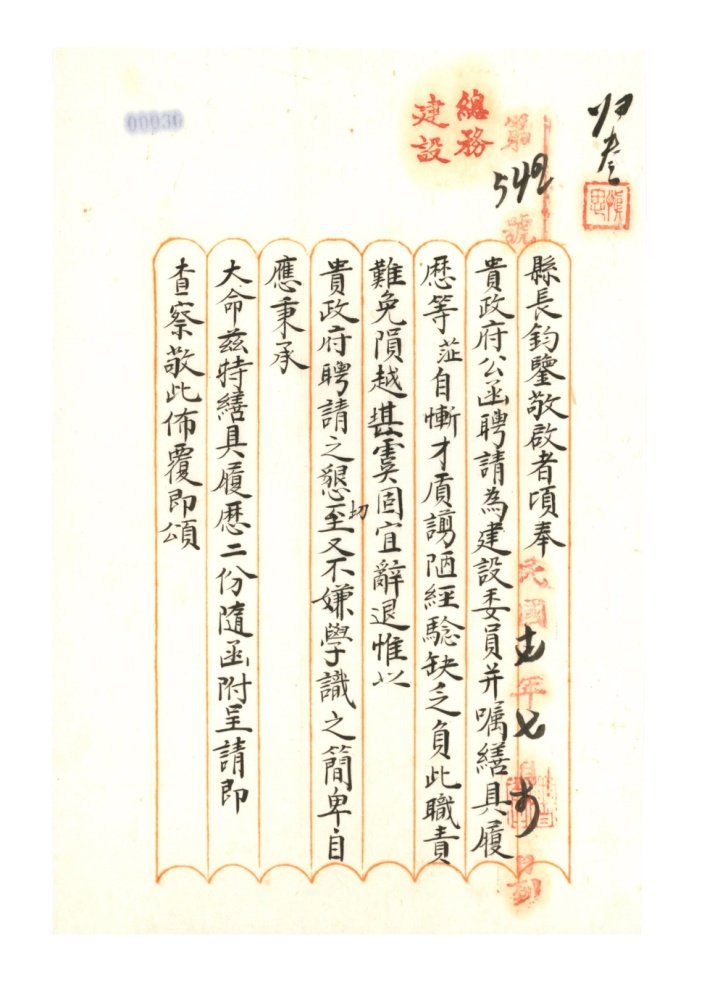 归卷
第542號
總務
建設
00030
縣長鈞鑒敬啟者頃奉
貴政府公函聘請為建設委員并囑繕具履
歷等蒞自慚才质謭陋經驗缺乏負此職責
難免隕越堪虞固宜辭退惟以
貴政府聘請之懇切至又不嫌學識之簡卑自
應秉承
大命茲特繕具履歷二份隨函附呈請即
查察敬此佈覆即頌
民國 年七月 日到